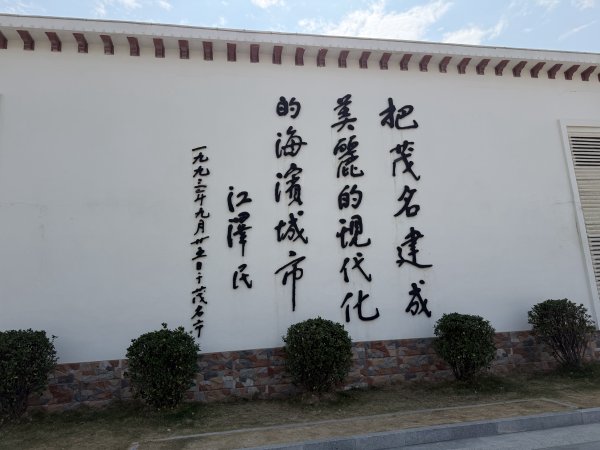 把茂名建成
美麗的现代化
的海濱城市
江澤民
一九九三年九月廿五日于茂名市